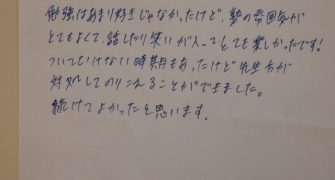 勉強はあまり好きじゃなかったけど、塾の雰囲気が
とてもよくて、話したり笑いが入ってとても楽しかったです!
ついていけない時期もあったけど先生方が
対処してのりこえることができました。
続けてよかったと思います。